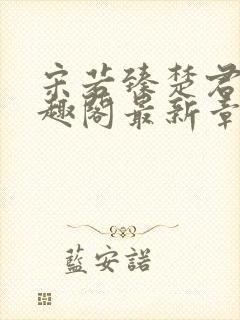 宋若臻楚君
趣阁最新章
藍安諾